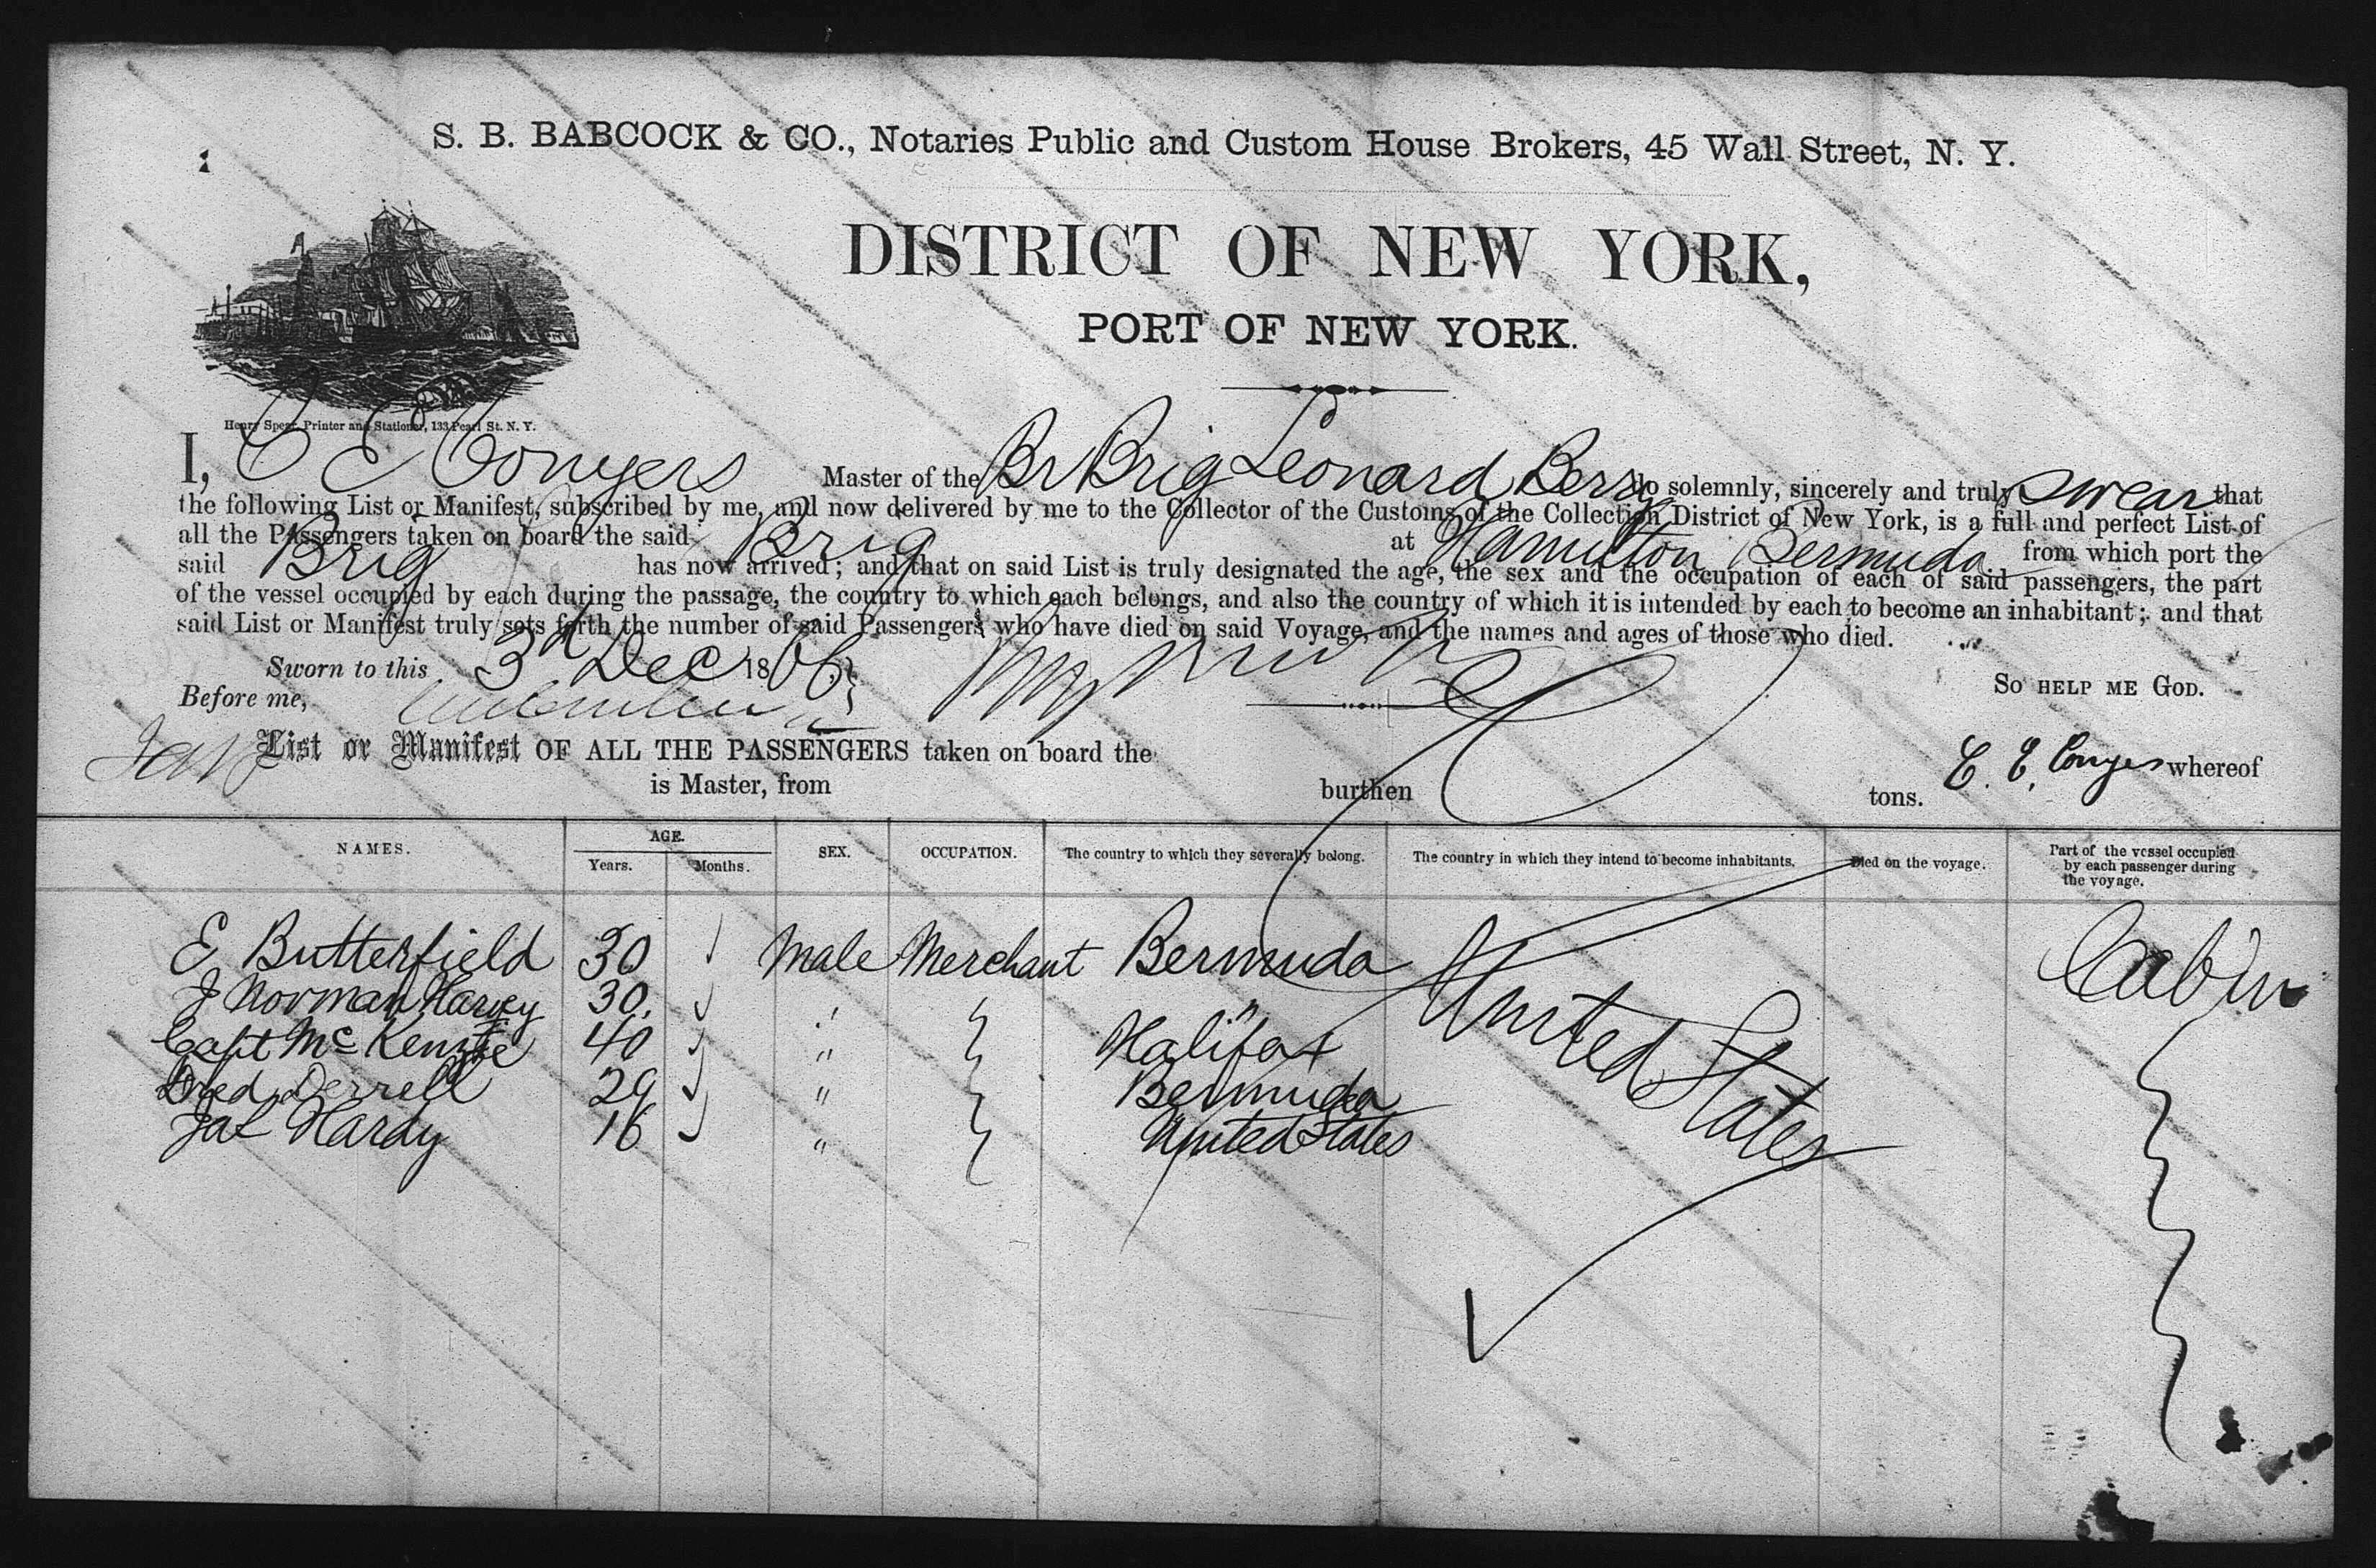 S. B. BABCOCK & CO., Notaries Public and Custom House Brokers, 45 Wall Street, N. Y.
DISTRICT OF NEW YORK,
PORT OF NEW YORK.
Henry Spear, Printer and Stationer, 133 Pearl St. N. Y.
I, C E Conyers Master of the Br Brig Leonard Berry do solemnly, sincerely and truly swear that
the following List or Manifest, subscribed by me, and now delivered by me to the Collector of the Customs of the Collection District of New York, is a full and perfect List of
all the Passengers taken on board the said Brig at Hamilton Bermuda from which port the
said Brig has now arrived; and that on said List is truly designated the age, the sex and the occupation of each of said passengers, the part
of the vessel occupied by each during the passage, the country to which each belongs, and also the country of which it is intended by each to become an inhabitant; and that
said List or Manifest truly sets forth the number of said Passengers who have died on said Voyage, and the names and ages of those who died.
Sworn to this 3d Dec 1866
So HELP ME GOD.
Before me,
List or Manifest OF ALL THE PASSENGERS taken on board the C. E. Conyers whereof
is Master, from burthen tons.
NAMES. AGE. Years. Months. SEX. OCCUPATION. The country to which they severally belong. The country in which they intend to become inhabitants. Died on the voyage. Part of the vessel occupied by each passenger during the voyage.
E Butterfield 30 Male Merchant Bermuda United States Cabin
J Norman Harvey 30. " "
Capt McKenzie 40 " Halifax
Fred Derrell 29 " Bermuda
Jas Hardy 16 " United States